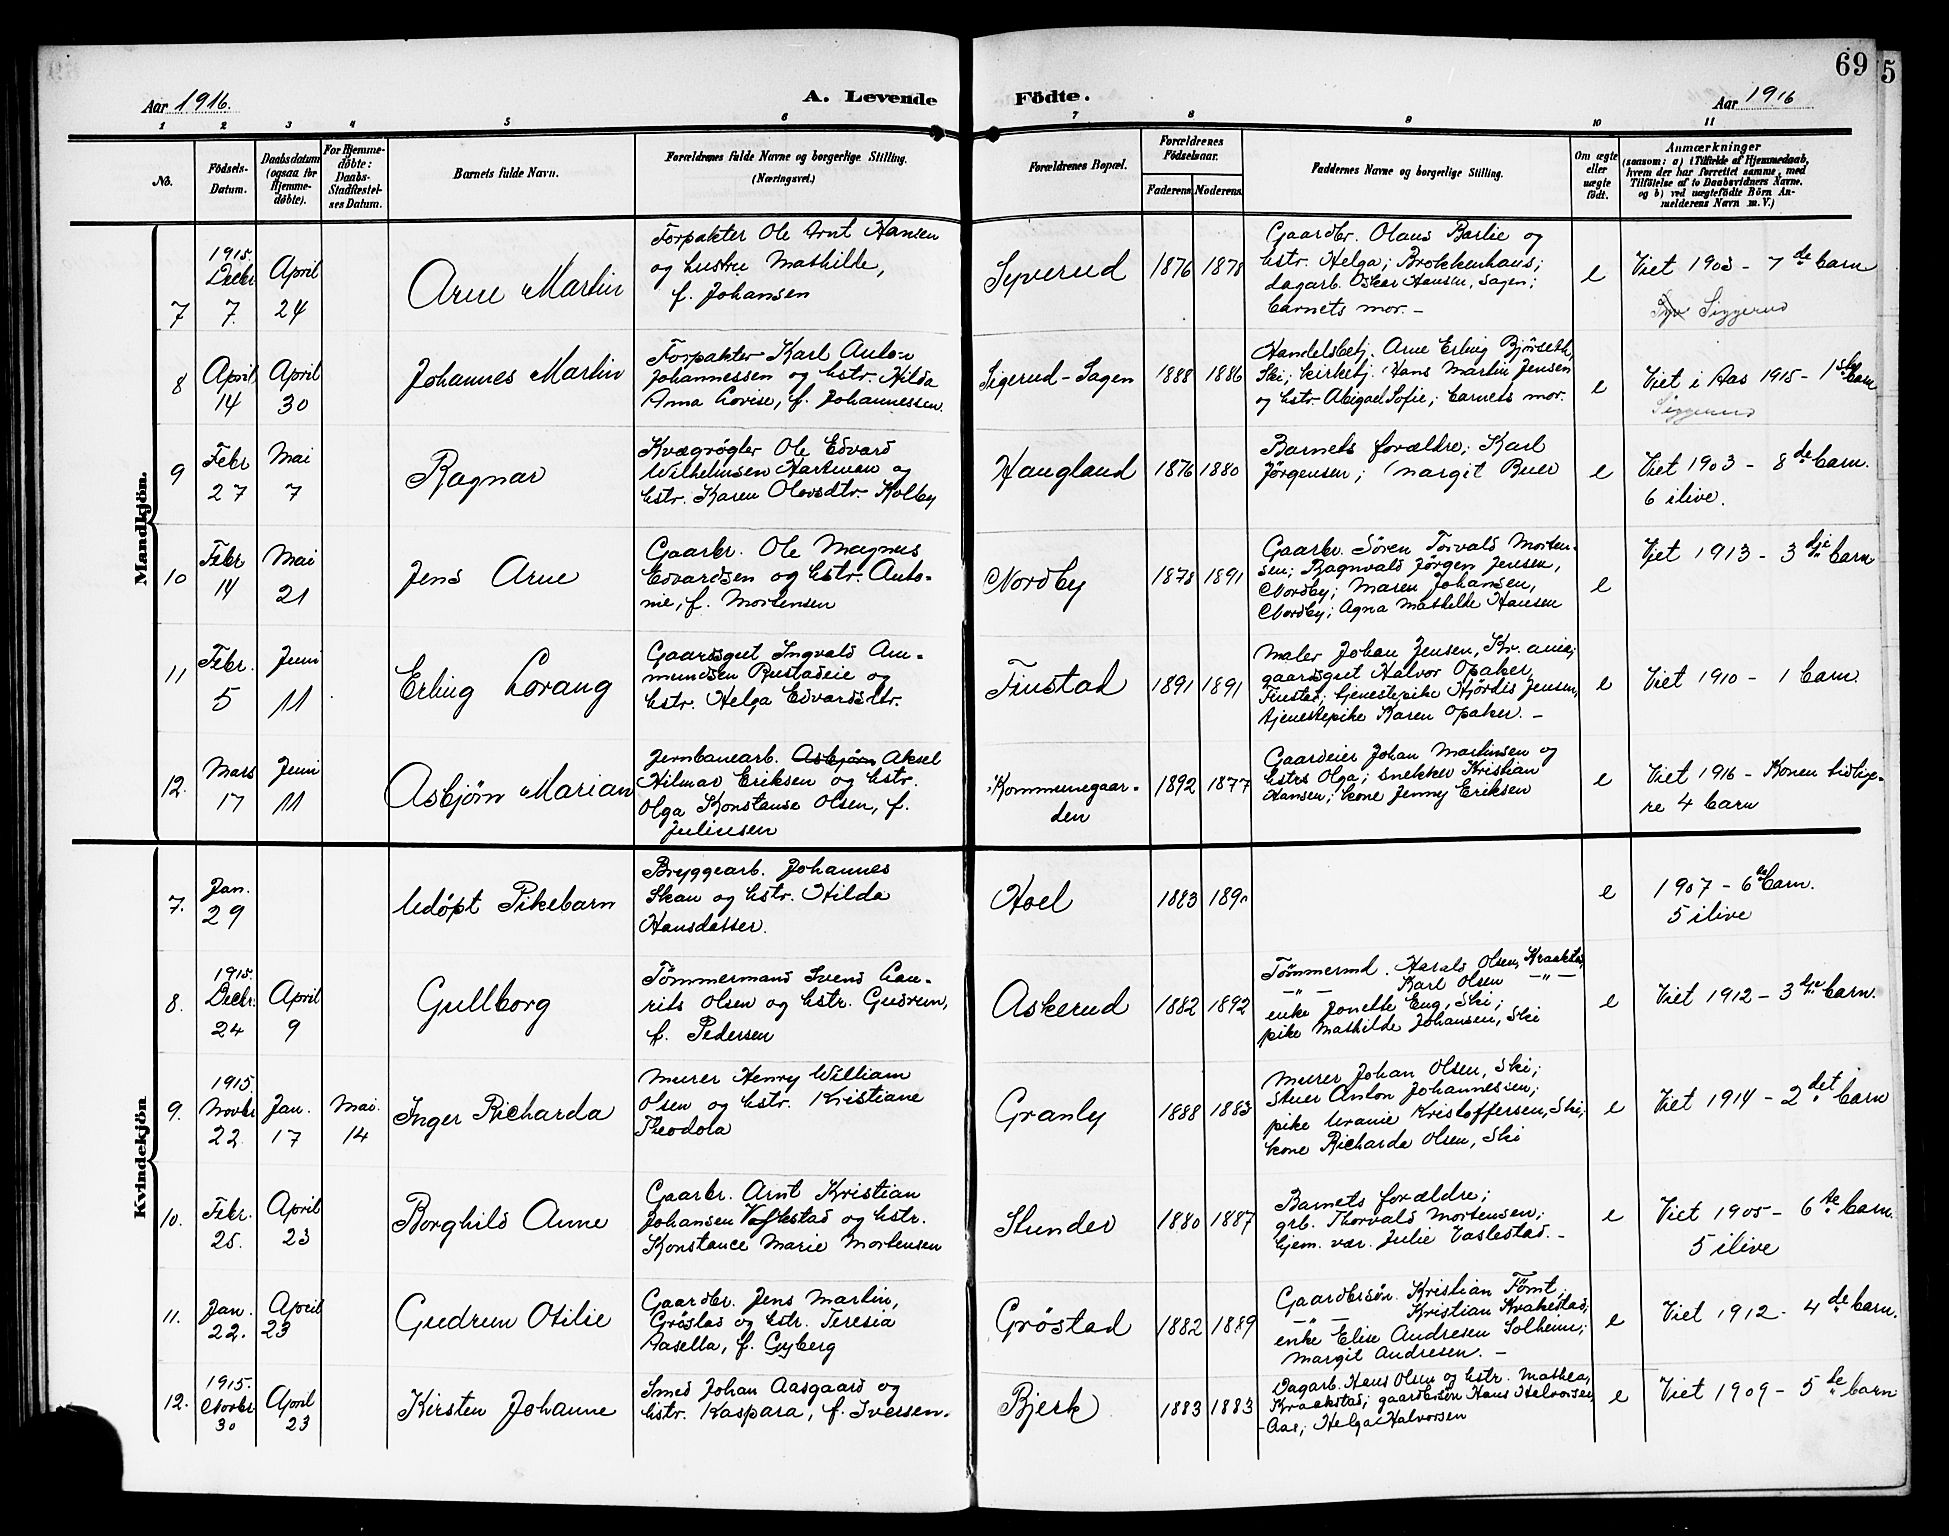 69
5
Aar 1916.
A. Levende
Födte.
Aar 1916
1 2 3 4 5 6 7 8 9 10 11
No.
Födsels-
Datum.
Daabsdatum
(ogsaa for
Hjemme-
döbte).
For Hjemme-
döbte:
Daabs-
Stadfæstel-
ses Datum.
Barnets fulde Navn.
Forældrenes fulde Navne og borgerlige Stilling.
(Næringsvei.)
Forældrenes Bopæl.
Forældrenes
Födselsaar.
Faderens. Moderens.
Faddernes Navne og borgerlige Stilling.
Om ægte
eller
uægte
født.
Anmærkninger
(saasom: a) i Tilfælde af Hjemmedaab,
hvem der har forrettet samme, med
Tilföielse af to Daabsvidners Navne.
og b) ved uægtefödte Börn An-
melderens Navn m. V.)
Mandkjön.
7
1915.
Decbr
7.
April
24
Arne Martin
Forpakter Ole Arnt Hansen
og hustru Mathilde,
f. Johansen
Syverud
1876 1878
Gaardbr. Olaus Barlie og
hstr. Helga; Brokkenhaus;
dagarb. Oskar Hansen, Sagen;
barnets mor. —
e
Viet 1903 - 7de barn
Siggerud
8
April
14
April
30
Johannes Martin
Forpakter Karl Anton
Johannessen og hstr. Hilda
Anna Lovise, f. Johannessen.
Sigerud-Sagen
1888 1886
Handelsbetj. Arne Erling Bjørseth,
Ski; kirketj. Hans Martin Jensen
og hstr. Abigael Sofie; barnets mor.
e
Viet i Aas 1915 - 1ste barn
Siggerud
9
Febr
27
Mai
7
Ragnar
Kvægrøgter Ole Edvard
Wilhelmsen Hartman og
hstr. Karen Olovsdtr. Kolby
Haugland
1876 1880
Barnets forældre; Karl
Jørgensen; Margit Buer
e
Viet 1903 - 8de barn.
6 ilive.
10
Febr
14
Mai
21
Jens Arne
Gaarbr. Ole Magnus
Edvardsen og hstr. Anto-
nie, f. Mortensen
Nordby
1878 1891
Gaarbr. Sören Torvald Morten-
sen; Ragnvald Jørgen Jensen,
Nordby; Maren Johansen,
Nordby; Agna Mathilde Hansen
e
Viet 1913 - 3dje barn
11
Febr.
5
Juni
11
Erling Lorang
Gaardsgut Ingvald Am-
mundsen Rustadeie og
hstr. Helga Edvardsdtr.
Finstad
1891 1891
Maler Johan Jensen, Kr.ania;
gaardsgut Halvor Opaker,
Finstad; tjenestepike Hjørdis Jensen,
tjenestepike Karen Opaker. —
e
Viet 1910 - 1 barn.
12.
Mars
17
Juni
11
Asbjørn Marian
Jernbanearb. Asbjørn Aksel
Hilmar Eriksen og hstr.
Olga Konstanse Olsen, f.
Juliusen
Kommunegaar-
den
1892 1877
Gaardeier Johan Martinsen og
hstrs Olga; snekker Kristian
Hansen; kone Jenny Eriksen
e
Viet 1916 - Konen tidlige-
re 4 barn
Kvindekjön
7.
Jan.
29
Udöpt Pikebarn
Bryggearb. Johannes
Skau og hstr. Hilda
Hansdatter.
Hoel
1883 1890
e
1907 - 6te barn.
5 ilive
8.
1915.
Decbr.
24
April
9
Gullborg
Tömmermand Svend Lau-
rits Olsen og hstr. Gudrun,
f. Pedersen
Askerud
1882 1892
Tømmermd. Harald Olsen, Kraakstad,
— " — Karl Olsen — " —
enke Jonette Eng, Ski;
pike Mathilde Johansen, Ski
e
Viet 1912 - 3dje barn.
9.
1915.
Novbr
22
Jan.
17
Mai.
14
Inger Richarda
Murer Henry William
Olsen og hstr. Kristiane
Theodola
Granly
1888 1883
Murer Johan Olsen, Ski;
Stuer Anton Johannessen;
pike Uranie Kristoffersen, Ski;
kone Richarda Olsen, Ski
e
Viet 1914 - 2det barn
10.
Febr.
25.
April
23
Borghild Anne
Gaarbr. Arnt Kristian
Johansen Vestestad og hstr.
Konstance Marie Mortensen
Stunder
1880 1887
Barnets forældre;
grb. Thorvald Mortensen;
hjem. vær. Julie Vastestad. —
e
Viet 1905 - 6te barn.
5 ilive
11.
Jan.
22.
April
23
Gudrun Otilie
Gaardbr. Jens Martin,
Grøstad og hstr. Teresia
Aasella, f. Gyberg
Grøstad
1882 1889
Gaardbrsön. Kristian Tömt,
— " — Kristian Krakestad,
enke Elise Andresen Solheim;
Margit Andresen. —
e
Viet 1912 - 4de barn.
12.
1915.
Novbr
30
April
23
Kirsten Johanne
Smed Johan Aasgaard og
hstr. Kaspara, f. Iversen.
Bjerk
1883 1883
Dagarb. Hans Olsen og hstr. Mathea,
Kraakstad; gaardbrsön Hans Halvorsen,
Aas; Helga Halvorsen
e
Viet 1909 - 5te barn